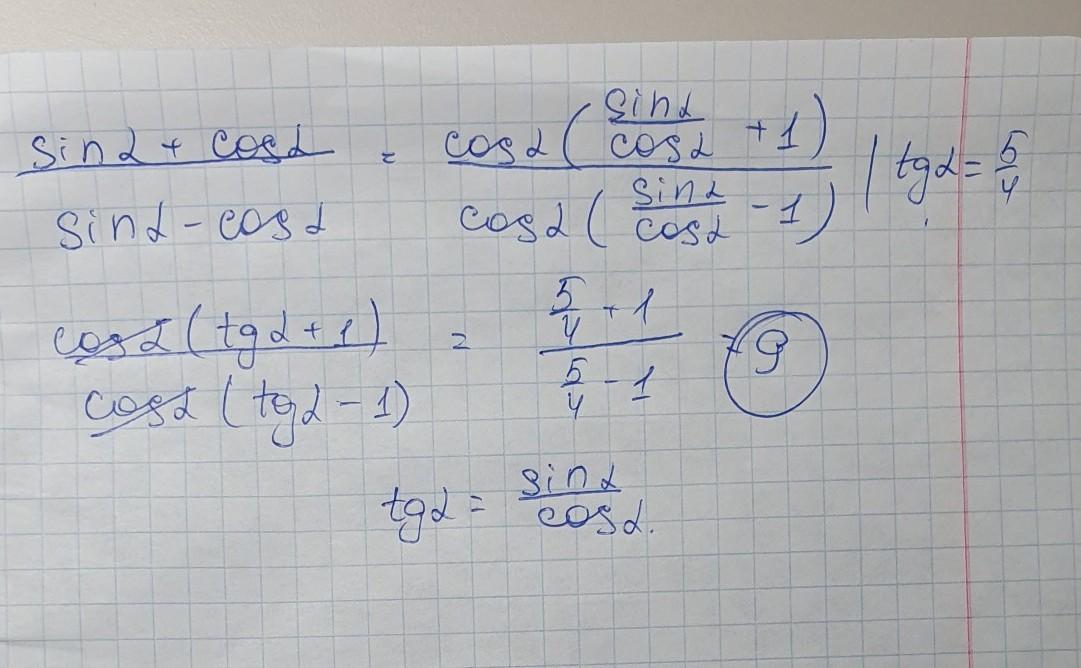 (sinα + cosα)/(sinα - cosα) = (cosα(sinα/cosα + 1))/(cosα(sinα/cosα - 1)) | tgα = 5/4
(cosα(tgα + 1))/(cosα(tgα - 1)) = (5/4 + 1)/(5/4 - 1) = 9
tgα = sinα/cosα.